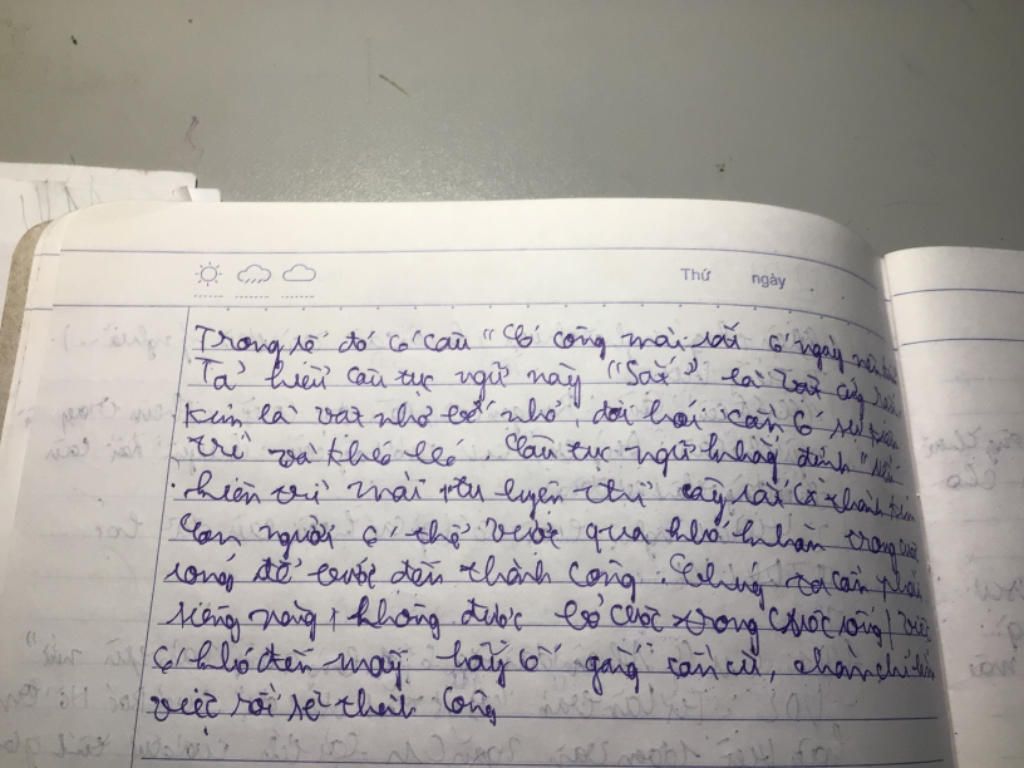 Thứ ngày
Trong số đó có câu "Có công mài sắt có ngày nên kim
Ta hiểu câu tục ngữ này "Sắt" là vật cứng rắn
Kim là vật nhỏ bé nhỏ, đòi hỏi cần có sự kiên
trì và khéo léo. Câu tục ngữ khẳng định "nếu
kiên trì mài, tu luyện thì cây sắt có thành kim
Con người có thể vượt qua khó khăn trong cuộc
sống để bước đến thành công. Chúng ta cần phải
siêng năng, không được bỏ cuộc trong cuộc sống, việc
có khó đến mấy hãy cố gắng cần cù, chăm chỉ làm
việc rồi sẽ thành công